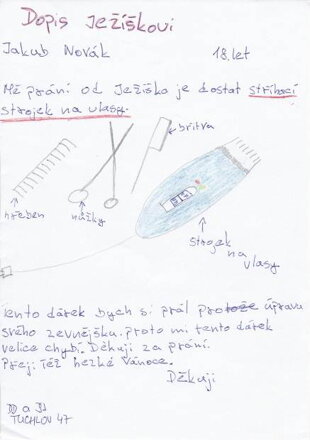 Dopis Ježíškovi
Jakub Novák 18. let
Mé prání od Ježíška je dostat stříhací
strojek na vlasy.
britva
hřeben
nůžky
strojek
na
vlasy
tento dárek bych si prál protože úpravu
svého zevnějšku. proto mi tento dárek
velice chybí. Děkuji za prání.
Preji Též hezké Vánoce.
Děkuji
TUCHLOV 47